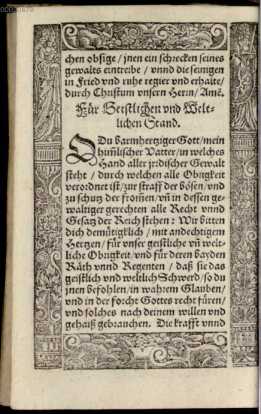 chen obsige / jnen ein schrecken seines
gewalts eintreibe / vnnd die seinigen
in Fried vnd ruhe regier vnd erhalte /
durch Christum vnsern Herrn / Amē.
Für Geistlichen vnd Welt-
lichen Stand.
O Du barmhertziger Gott / mein
himlischer Vatter / in welches
Hand aller jrdischer Gewalt
steht / durch welchen alle Obrigkeit
verordnet ist / zur straff der bösen / vnd
zu schutz der frommen / vñ in dessen ge-
waltiger gerechten alle Recht vnnd
Gesatz der Reich stehen: Wir bitten
dich demütigklich / mit andechtigem
Hertzen / für vnser geistliche vñ welt-
liche Obrigkeit / vnd für deren bayden
Räth vnnd Regenten / daß sie das
geistlich vnd weltlich Schwerd / so du
jnen befohlen / in wahrem Glauben /
vnd in der forcht Gottes recht füren /
vnd solches nach deinem willen vnd
gehaiß gebrauchen. Die krafft vnnd